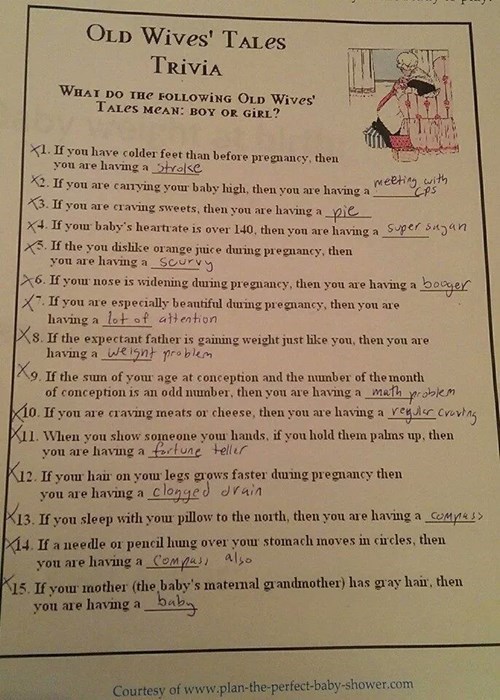 Old Wives' Tales
Trivia
What do the following Old Wives'
Tales mean: boy or girl?
X1. If you have colder feet than before pregnancy, then
you are having a stroke
X2. If you are carrying your baby high, then you are having a meeting with
CPS
X3. If you are craving sweets, then you are having a pie
X4. If your baby's heartrate is over 140, then you are having a super sayan
X5. If the you dislike orange juice during pregnancy, then
you are having a scurvy
X6. If your nose is widening during pregnancy, then you are having a booger
X7. If you are especially beautiful during pregnancy, then you are
having a lot of attention
X8. If the expectant father is gaining weight just like you, then you are
having a weight problem
X9. If the sum of your age at conception and the number of the month
of conception is an odd number, then you are having a math problem
X10. If you are craving meats or cheese, then you are having a regular craving
X11. When you show someone your hands, if you hold them palms up, then
you are having a fortune teller
X12. If your hair on your legs grows faster during pregnancy then
you are having a clogged drain
X13. If you sleep with your pillow to the north, then you are having a compass
X14. If a needle or pencil hung over your stomach moves in circles, then
you are having a compass also
X15. If your mother (the baby's maternal grandmother) has gray hair, then
you are having a baby
Courtesy of www.plan-the-perfect-baby-shower.com